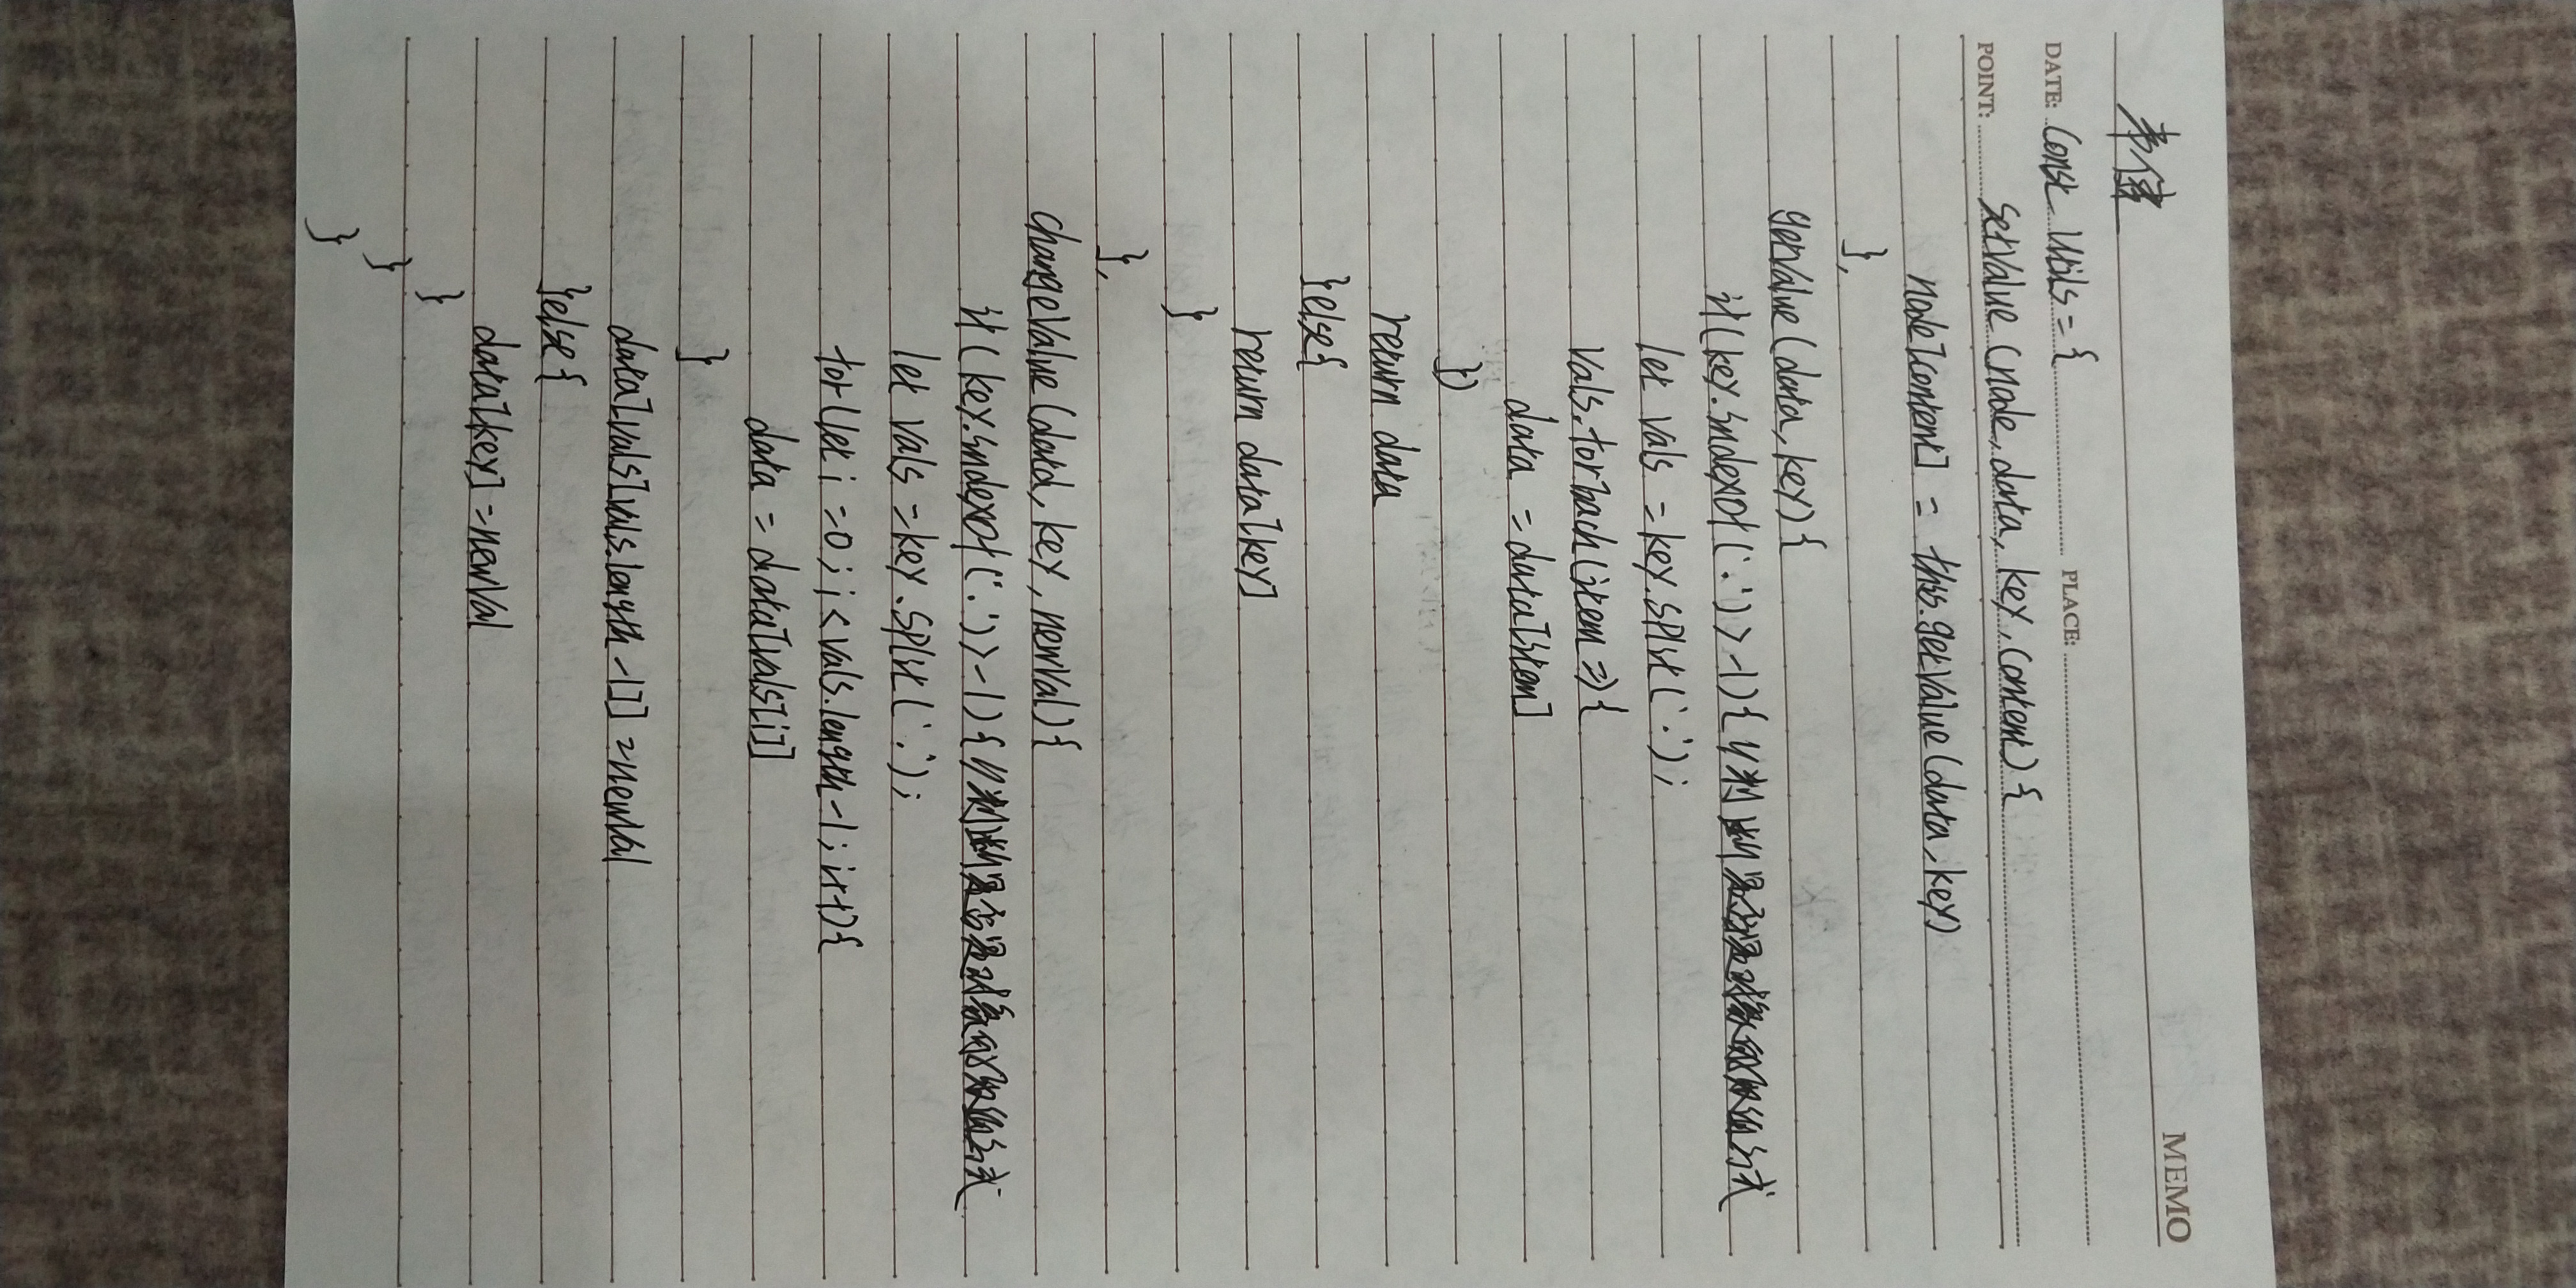 MEMO
韦健
DATE: Const Utils = {
PLACE:
POINT: setValue (node, data, key, content) {
node[content] = this.getValue(data, key)
},
getValue (data, key) {
if (key.indexOf('.') > -1) { // 判断是否是对象的取值方式
let vals = key.split('.');
vals.forEach(item => {
data = data[item]
})
return data
}else{
return data[key]
}
},
changeValue (data, key, newVal) {
if (key.indexOf('.') > -1) { // 判断是否是对象的取值方式
let vals = key.split('.');
for (let i = 0; i < vals.length - 1; i++) {
data = data[vals[i]]
}
data[vals[vals.length - 1]] = newVal
}else{
data[key] = newVal
}
}
}